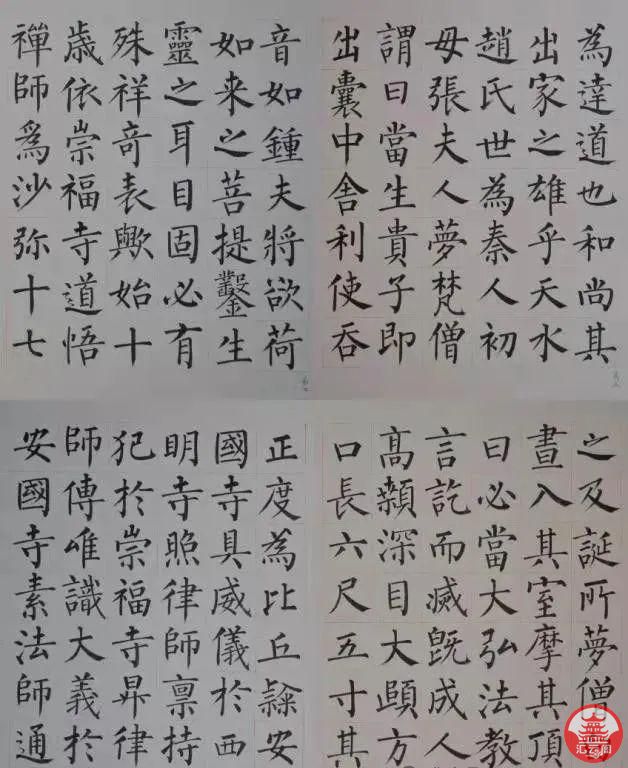 為達道也和尚其
出家之雄乎天水
趙氏世為秦人初
母張夫人夢梵僧
謂曰當生貴子即
出囊中舍利使吞
之及誕所夢僧
晝入其室摩其頂
曰必當大弘法教
言訖而滅既成人
高顙深目大頤方
口長六尺五寸其
音如鍾夫將欲荷
如来之菩提鑿生
靈之耳目固必有
殊祥奇表歟始十
歳依崇福寺道悟
禪師爲沙弥十七
正度為比丘隸安
國寺具威儀於西
明寺照律師禀持
犯於崇福寺昇律
師傳唯識大義於
安國寺素法師通
汇云阁